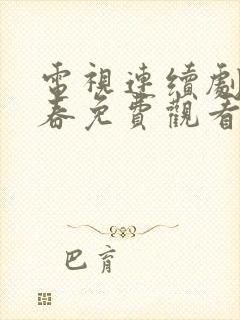 電視連續劇
春免費觀看
巴育